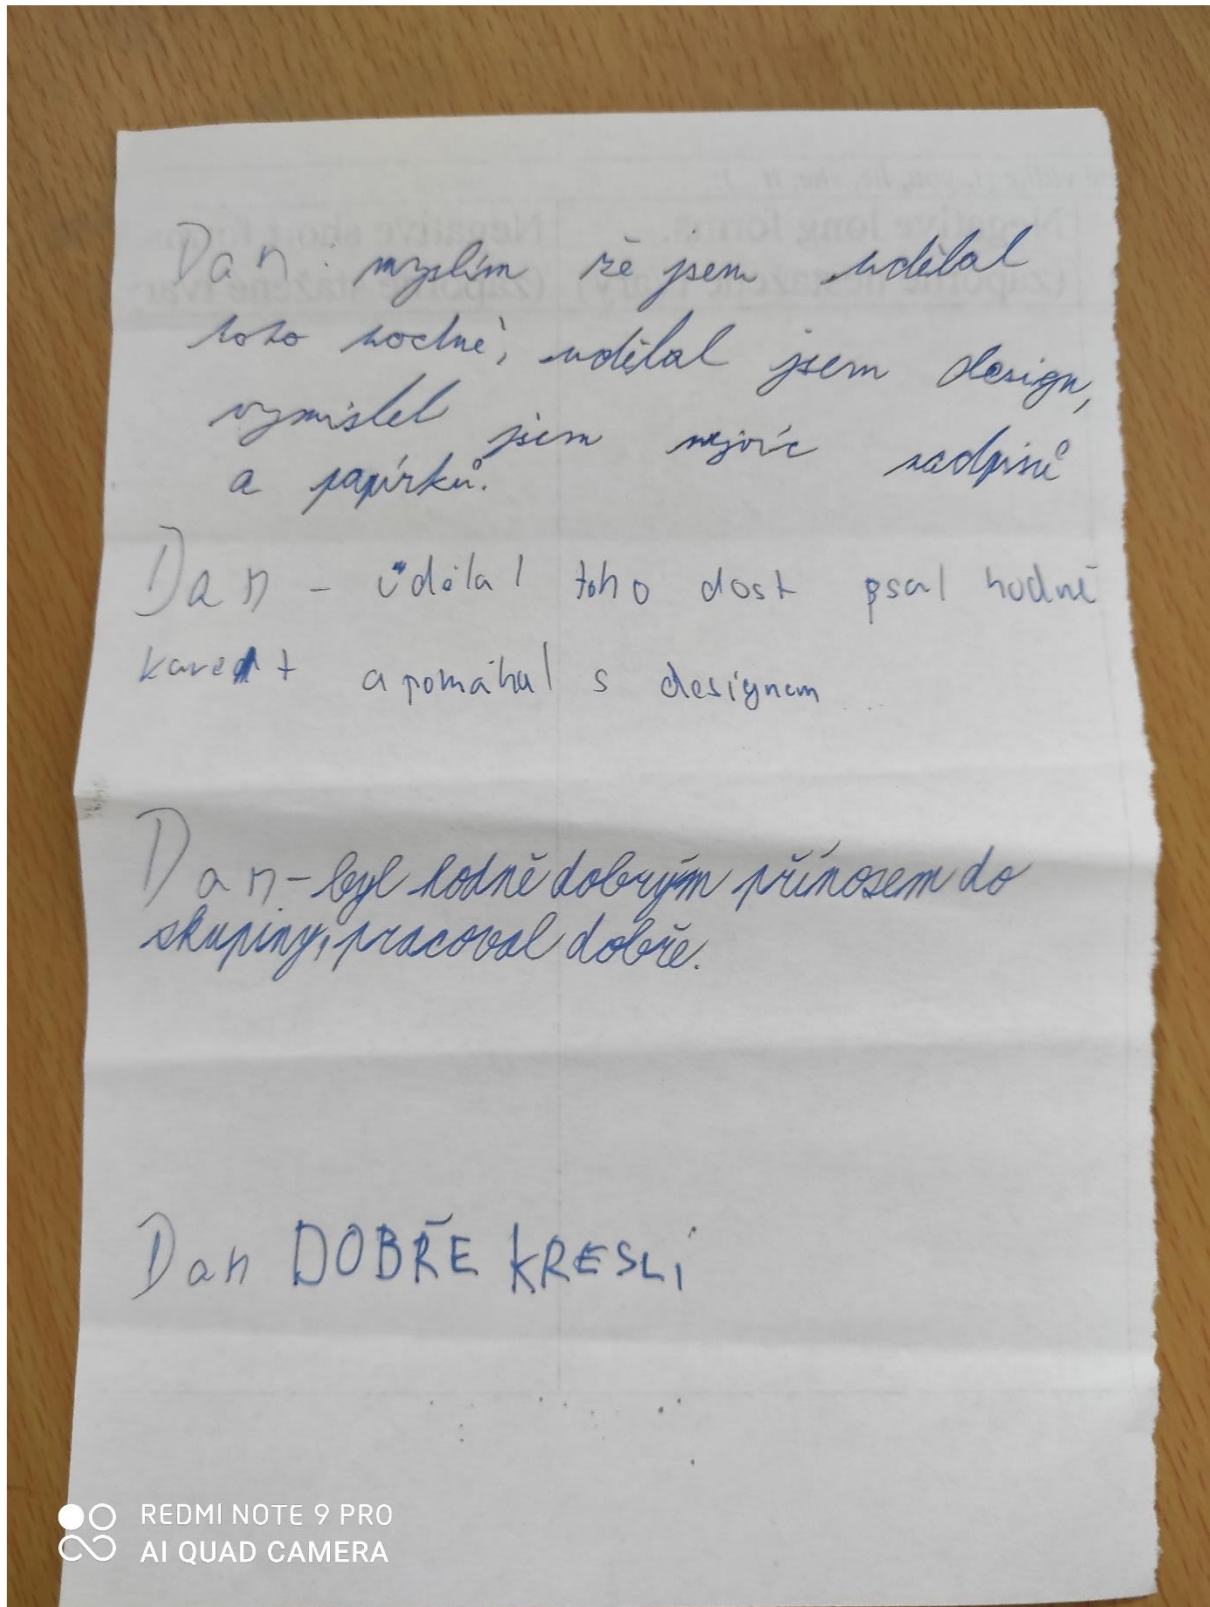 Dan: myslím že jsem udělal
toho hodně, udělal jsem design,
vymislel jsem nejvíc nadpisů
a papírků.
Dan - udělal toho dost psal hodně
karet a pomáhal s designem
Dan - byl hodně dobrým přínosem do
skupiny, pracoval dobře.
Dan DOBŘE KRESLÍ
REDMI NOTE 9 PRO
AI QUAD CAMERA